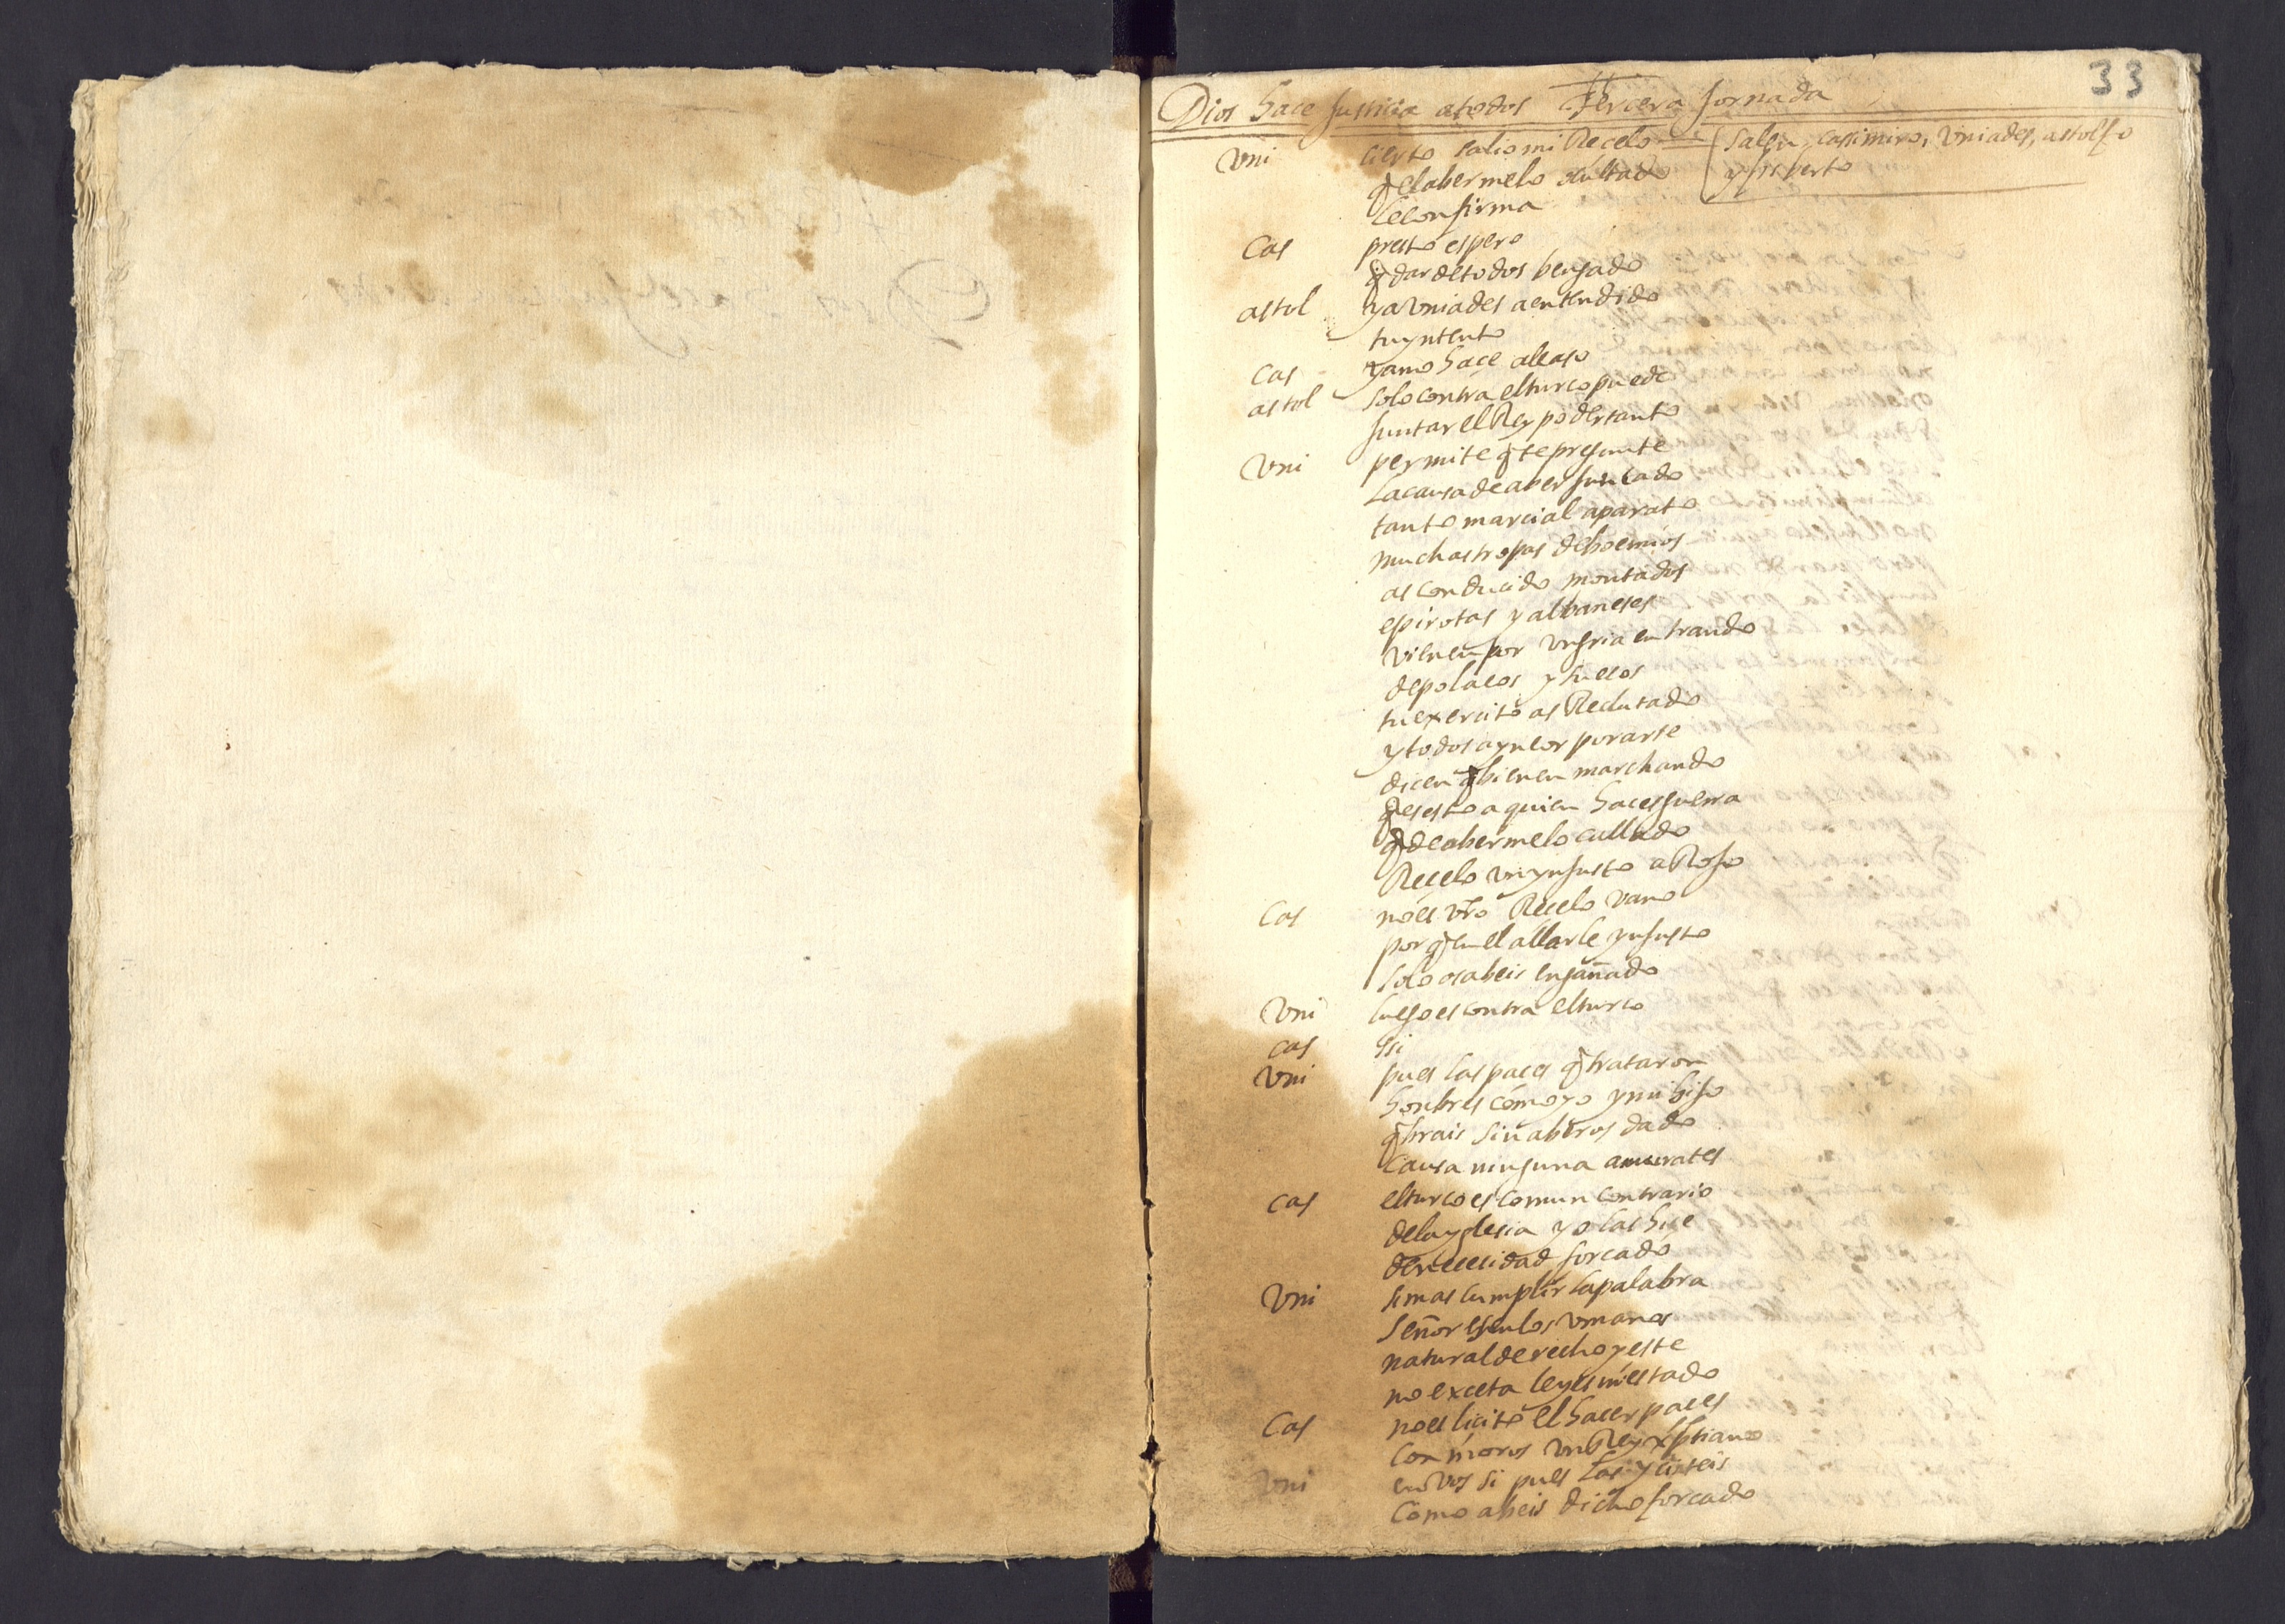 33
Dios hace justicia a todos Tercera Jornada
Uni cierto salio mi Recelo
Salen, casimiro, Uniades, astolfo
y fisberto
q̃ el abermelo ocultado
le confirma
Cas presto espero
q̃dar de todos bengado
astol ya Uniades a entendido
tu yntento
Cas ya no hace al caso
astol solo contra el turco puede
juntar el Rey poder tanto
Uni permite q̃ te pregunte
la causa de aber juntado
tanto marcial aparato
muchas tropas de boemios
as conducido montados
espirotas y albaneses
vienen por ungria entrando
de polacos y suecos
tu exercito as Reclutado
y todos a yncorporarse
dicen q̃ bienen marchando
q̃ es esto a quien haces guerra
q̃ de abermelo callado
Recelo un ynjusto aRojo
Cas no es vr̃o Recelo vano
por q̃ en el allarle ynjusto
solo os abeis engañado
Uni luego es contra el turco
cas ssi
Uni pues las paces q̃ trataron
honbres como yo y mi hijo
q̃brais sin aberos dado
causa ninguna amurates
cas el turco es comun contrario
de la yglesia yo las hice
de necesidad forcado
Uni si mas cumplir la palabra
señor es en los umanos
natural derecho y este
no exceta leyes ni estado
Cas no es licito el hacer paces
con moros un Rey xp̃tiano
Uni en vos si pues las ycisteis
como abeis dicho forcado